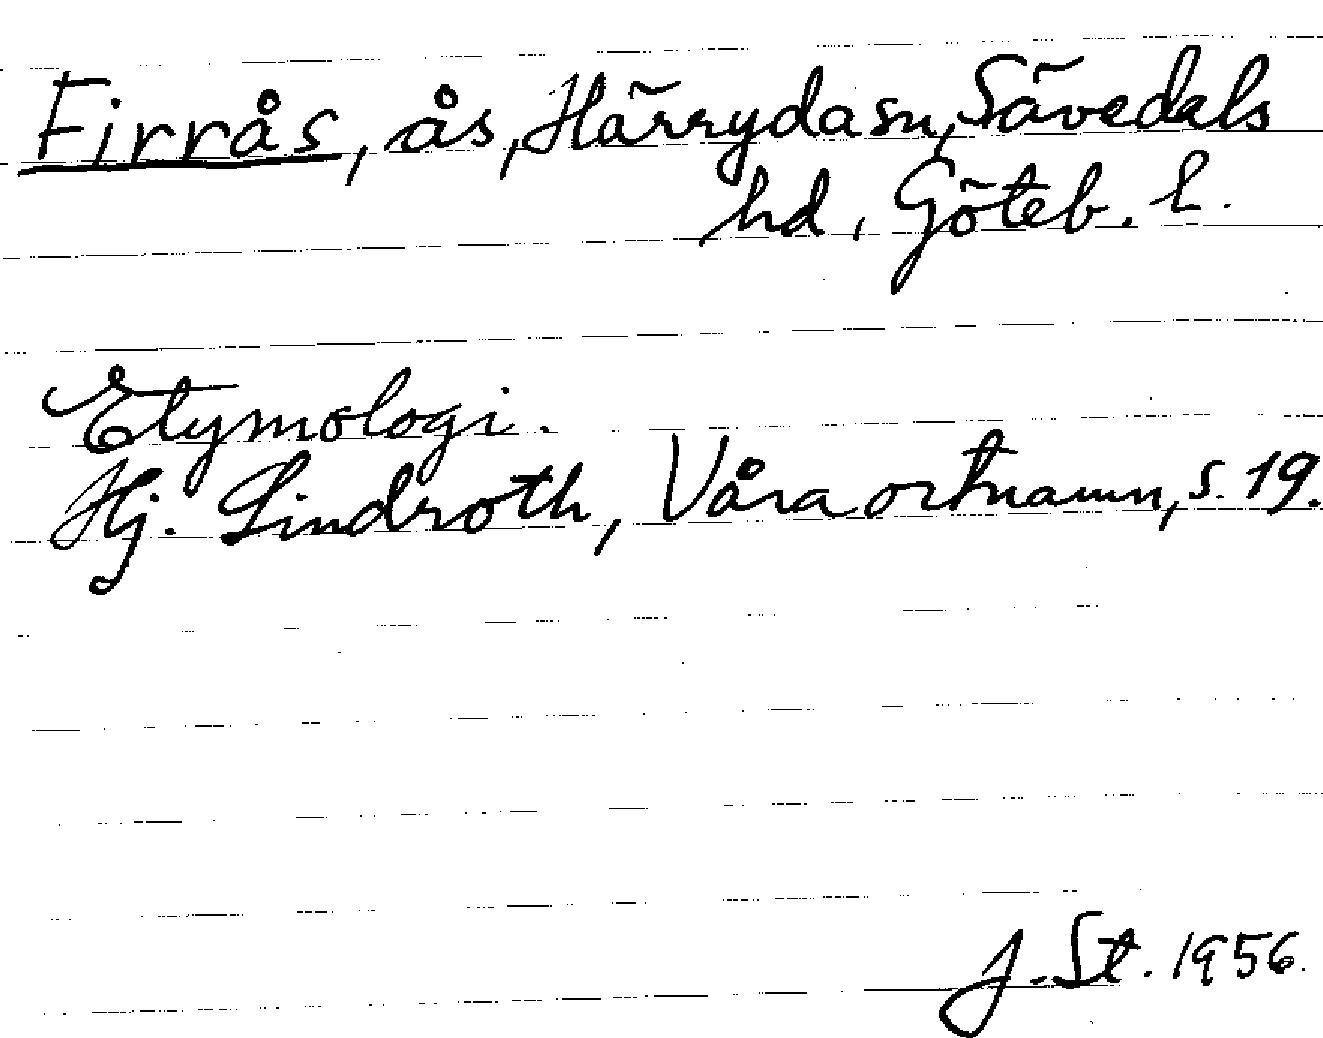 Firrås, ås, Härryda sn, Sävedals
hd, Göteb. l.
Etymologi.
Hj. Lindroth, Våra ortnamn, s. 19.
J. St. 1956.